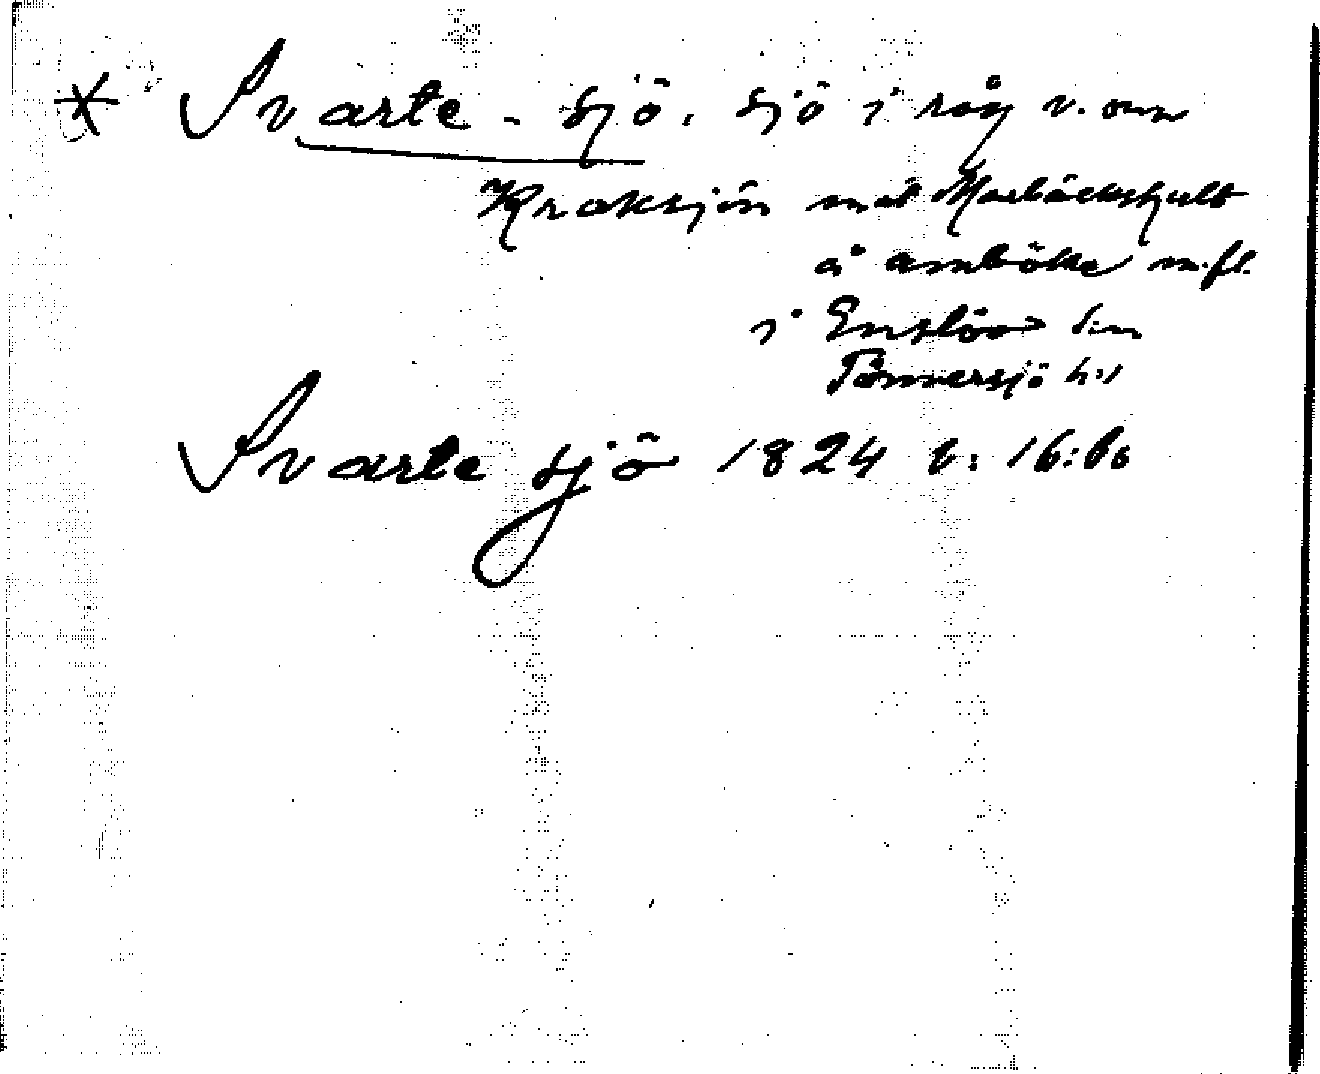 * Svarte-sjö. sjö i råg v. om
Kroksjön mot Marbäckshult
å ambötte m.fl.
i Enslövs sn
Tönnersjö h:d
Svarte sjö 1824 6: 16:60